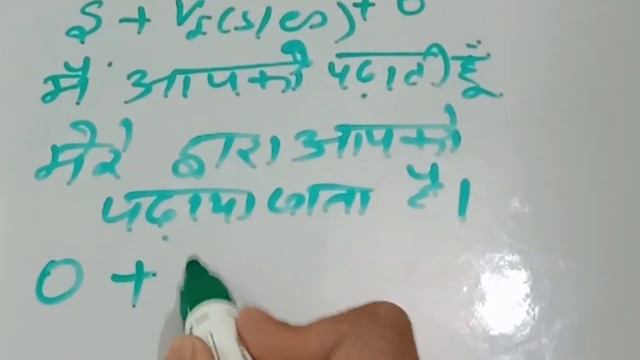 S + V₁(s/es) + O
मैं आपको पढ़ाती हूँ
मेरे द्वारा आपको
पढ़ाया जाता है।
O +